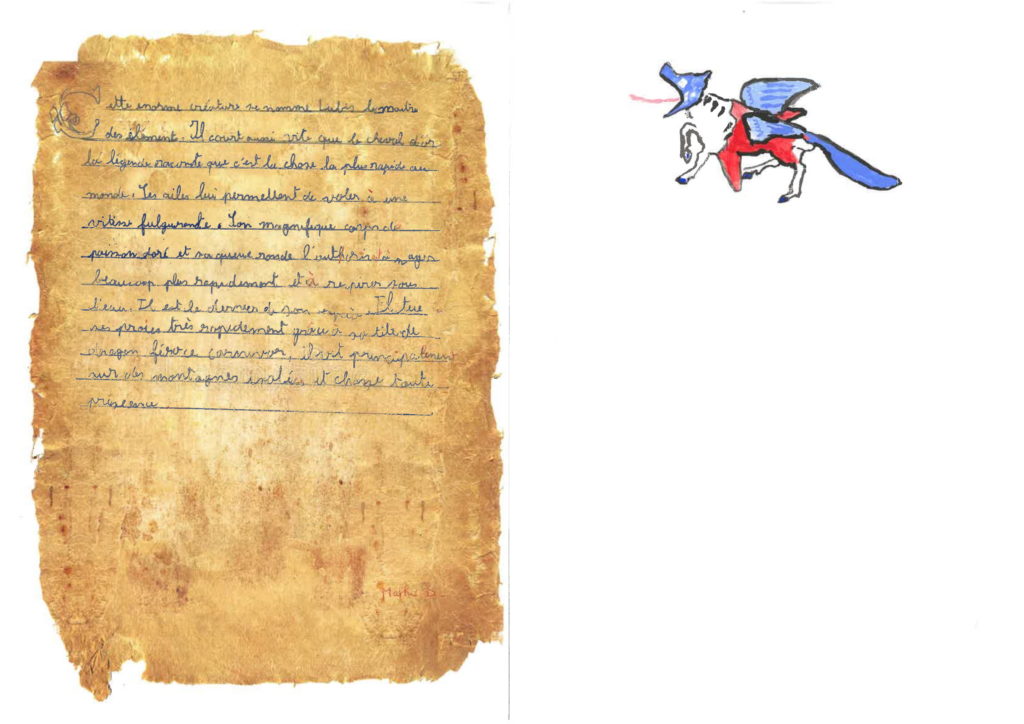 Cette enorme créature se nomme Lubis le maitre
des élement. Il court aussi vite que le cheval d'or
la légende raconte que c'est la chose la plus rapide au
monde. Ses ailes lui permettent de voler à une
vitesse fulgurante. Son magnifique corps de
poisson doré et sa queue ronde l'autorise à nager
beaucoup plus rapidement et à respirer sous
l'eau. Il est le dernier de son espèce. Il tue
ses proies très rapidement grâce à sa tête de
dragon féroce carnivore, il vit principalement
sur des montagnes isolées et chasse toute
présence